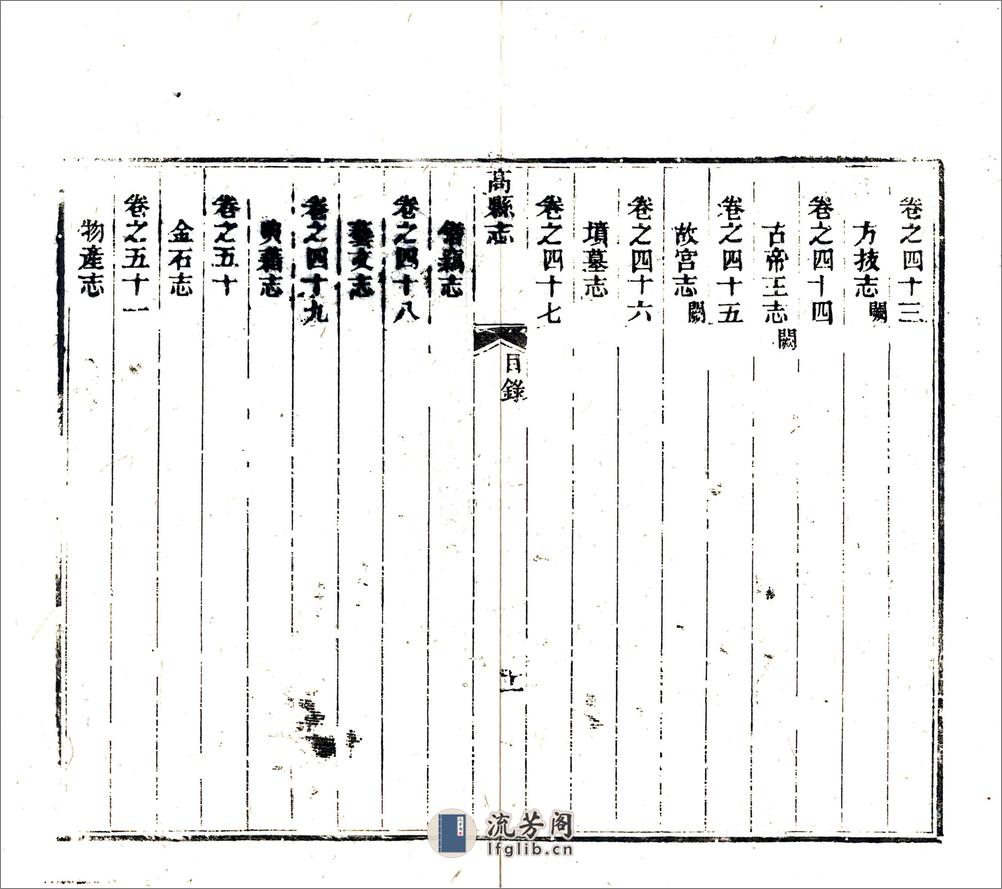 卷之四十三
方技志 闕
卷之四十四
古帝王志 闕
卷之四十五
故宫志 闕
卷之四十六
墳墓志
卷之四十七
高縣志
目錄
十一
僭竊志
卷之四十八
藝文志
卷之四十九
典籍志
卷之五十
金石志
卷之五十一
物產志
流芳阁
lfglib.cn